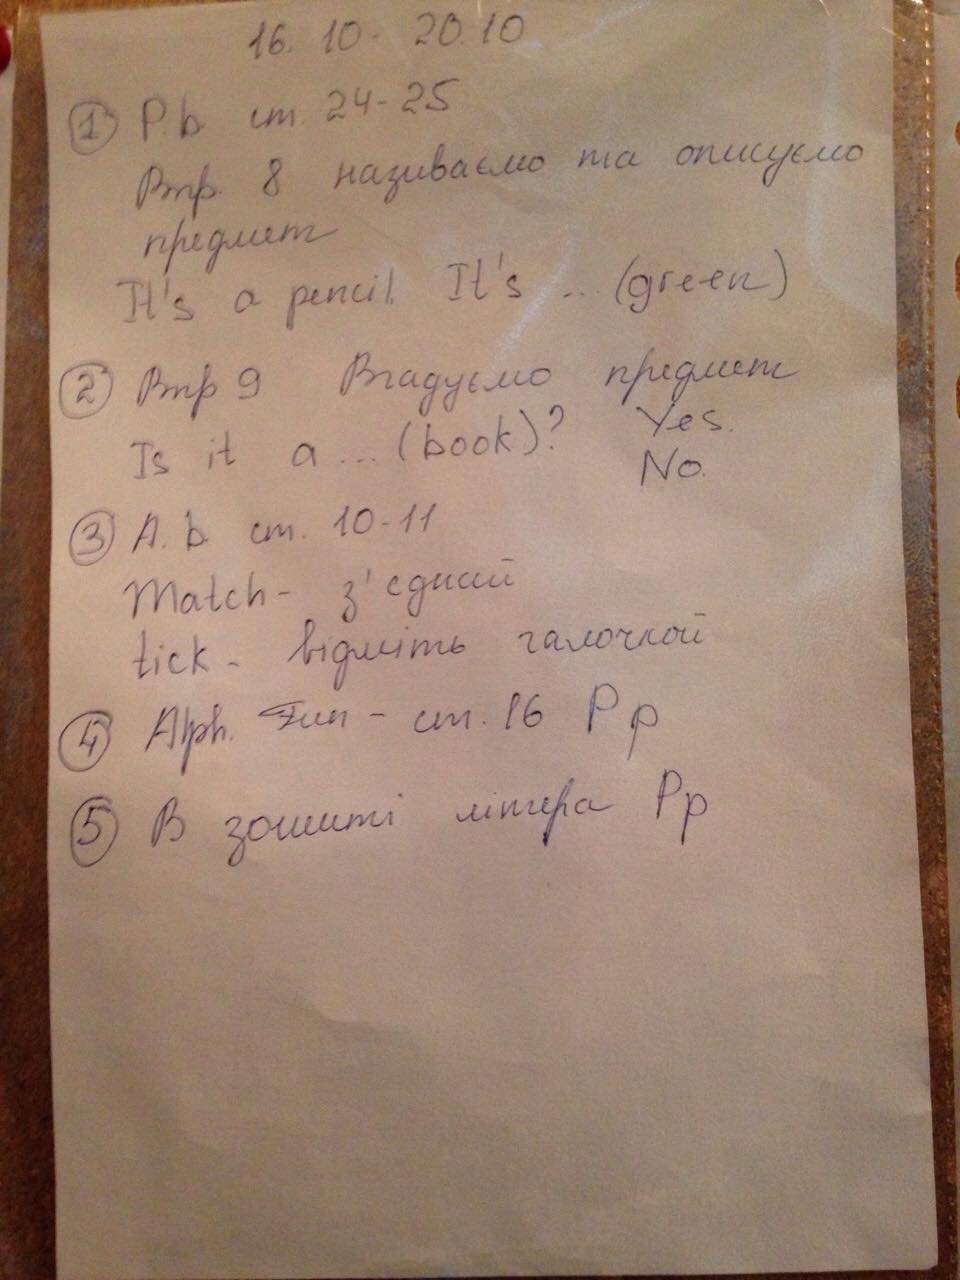 16.10 - 20.10
① P.b. ст. 24-25
Впр. 8 називаємо та описуємо
предмет
It's a pencil. It's ... (green)
② Впр 9 Вгадуємо предмет
Is it a ... (book)? Yes.
No.
③ A.b. ст. 10-11
Match - з'єднай
tick - відміть галочкой
④ Alph. Fun - ст. 16 Pp
⑤ В зошиті літера Pp